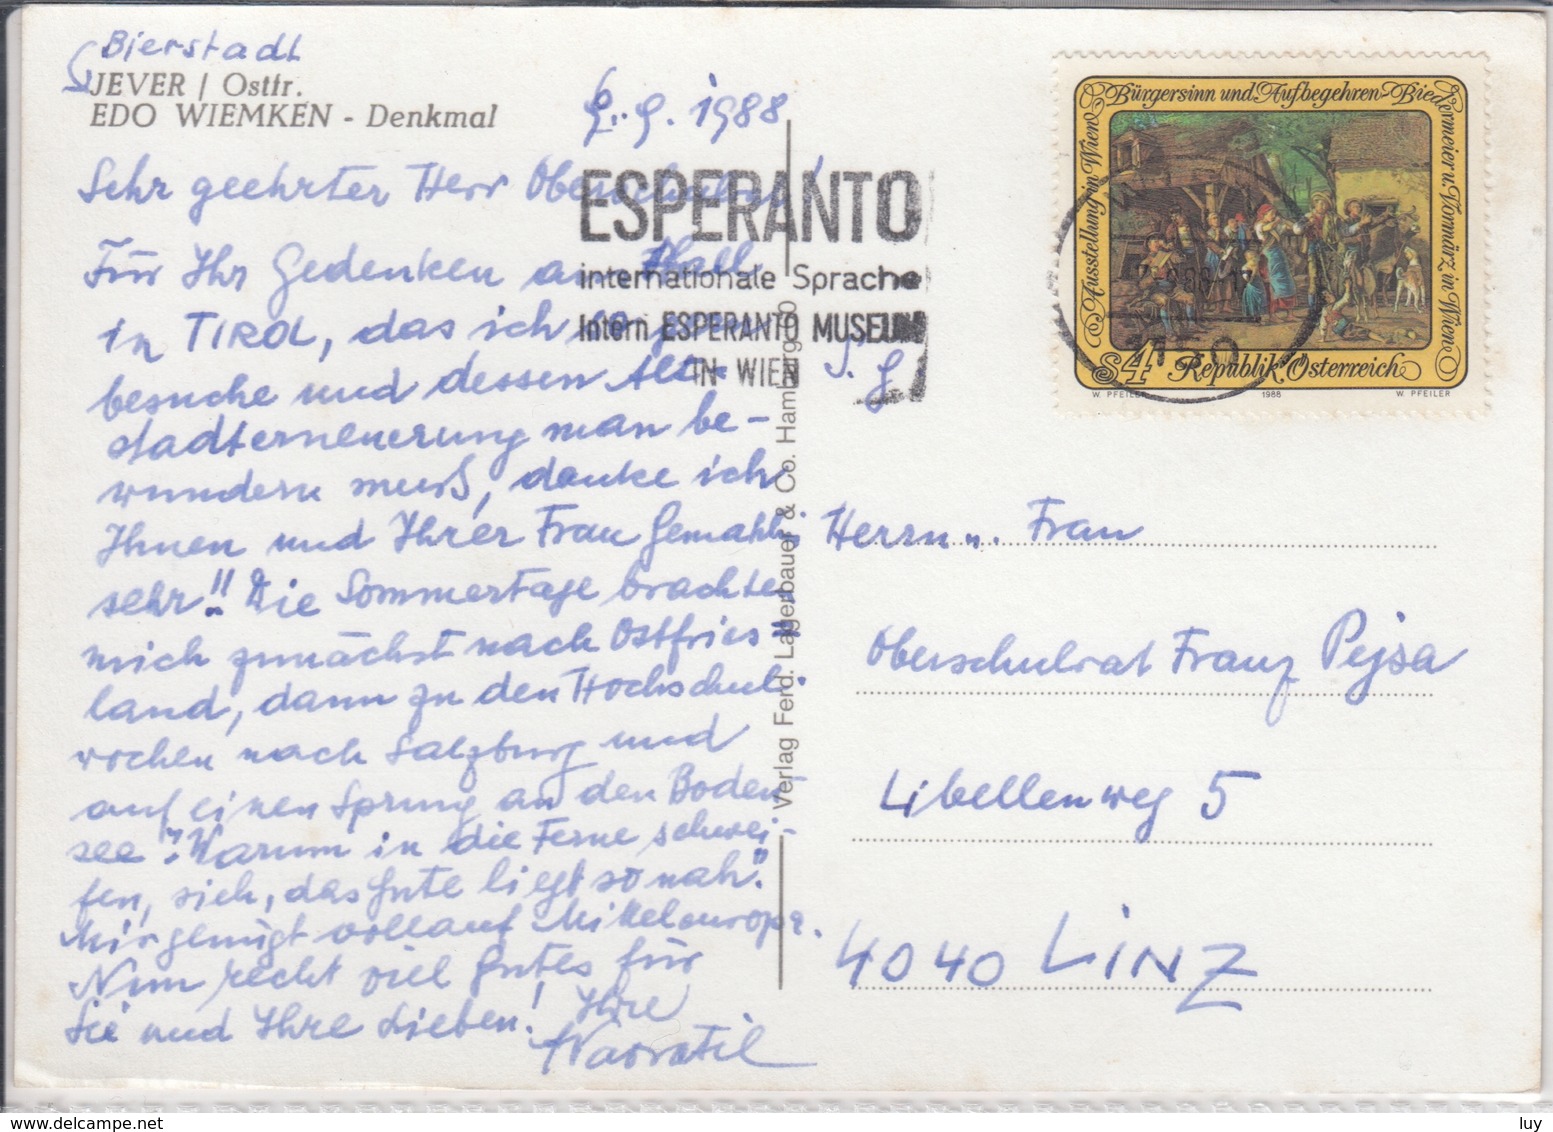 Bierstadt
JEVER / Ostfr.
EDO WIEMKEN - Denkmal
9. 1988
Sehr geehrter Herr
Für Ihr Gedenken an Hall
in TIROL, das ich so gern
besuche und dessen Alt-
stadterneuerung man be-
wundern muß, danke ich
Ihnen und Ihrer Frau Gemahlin
sehr!! Die Sommertage brachten
mich zunächst nach Ostfries=
land, dann zu den Hochschul-
wochen nach Salzburg und
auf einen Sprung an den Boden-
see. "Warum in die Ferne schwei-
fen, sieh, das Gute liegt so nah."
Mir genügt vollauf Mitteleuropa.
Nun recht viel Gutes für
Sie und Ihre Lieben! Ihre
Navratil
ESPERANTO
internationale Sprache
Intern ESPERANTO MUSEUM
IN WIEN
Verlag Ferd. Lagerbauer & Co. Hamburg 50
Bürgersinn und Aufbegehren-Biedermeier u. Vormärz in Wien
Ausstellung in Wien
S4 Republik Österreich
W. PFEILER 1988 W. PFEILER
Herrn u. Frau
Oberschulrat Franz Pejsa
Libellenweg 5
4040 LINZ
delcampe.net
luy